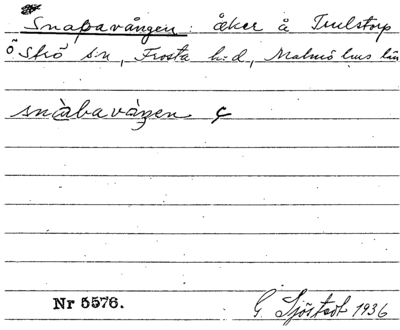 Snapavången: åker å Trulstorp
Ö Strö sn, Frosta h:d, Malmöhus län
snàbavàŋen ç
Nr 5576.
G Sjöstedt 1936